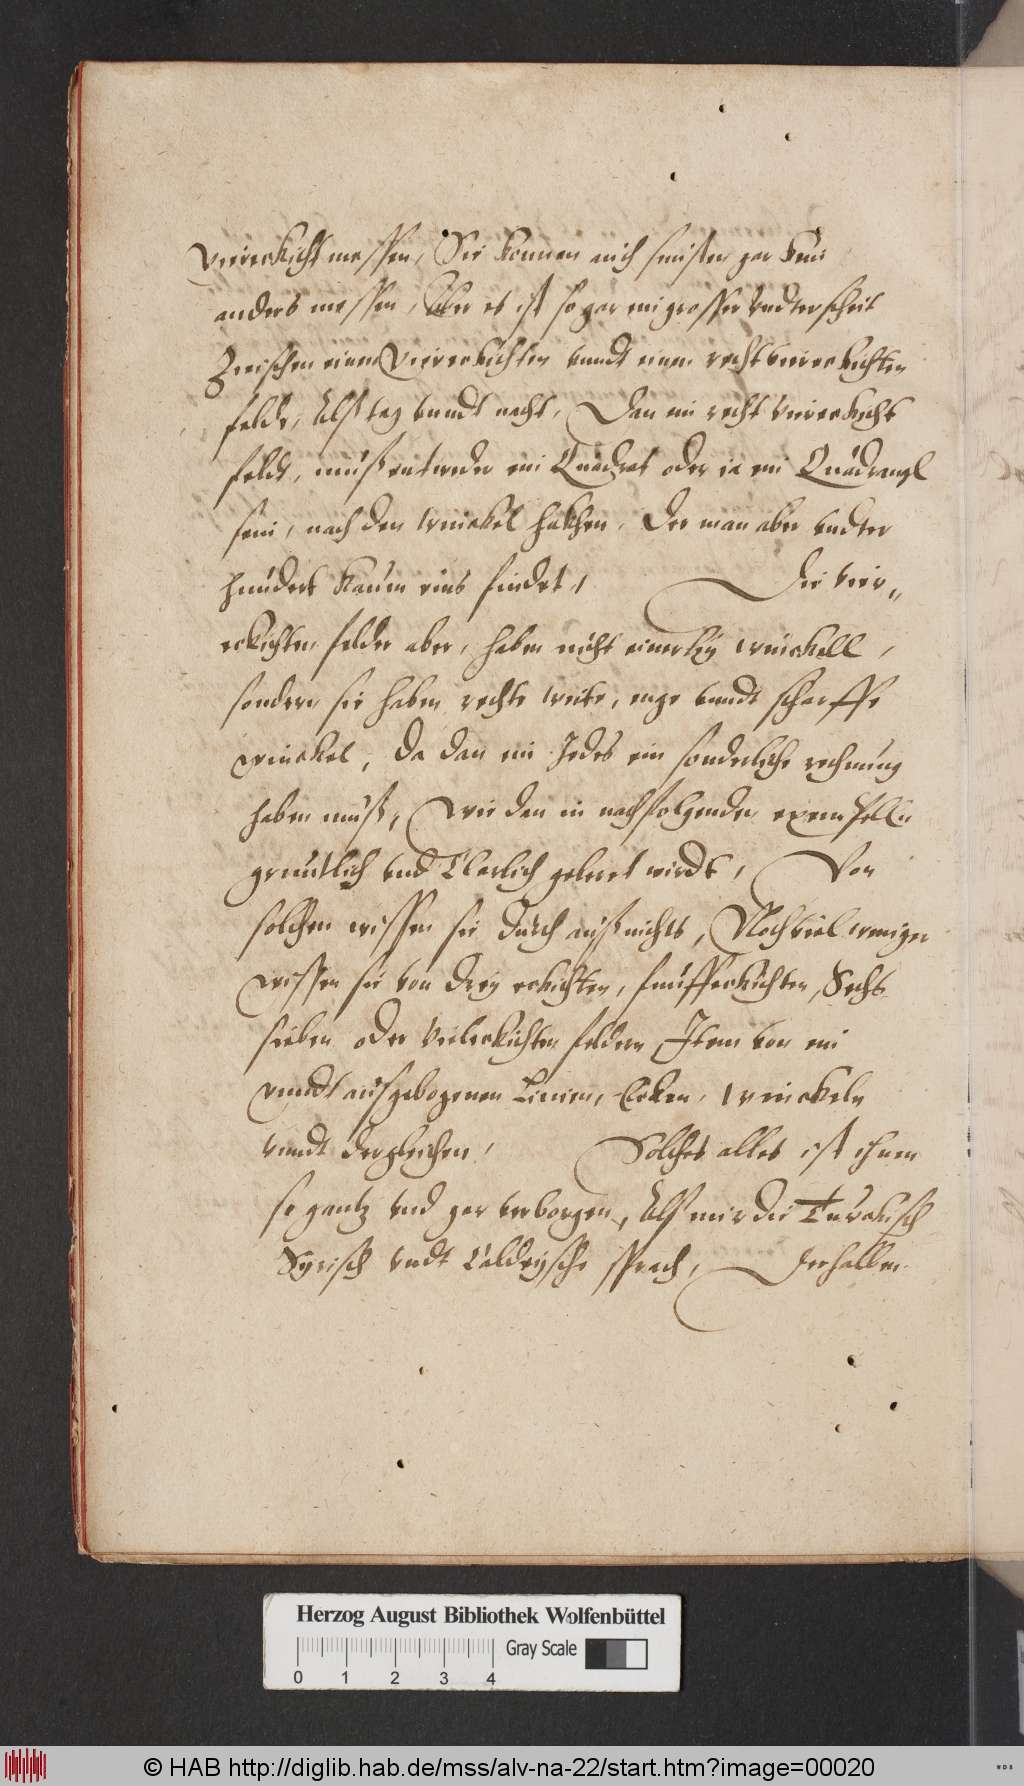 viereckicht messen, Sie konnen auch sunsten gar kein
anders messen, Aber es ist so gar ein grosser Vndterscheit
Zwischen einem Viereckichten vnndt einem recht viereckichten
felde, Alß tag vnndt nacht, Dan ein recht viereckicht
feldt, muß entweder ein Quadrat oder ia ein Quadrangl
sein, nach den winckel hakhen, Der man aber vndter
hundert kaum eins findet, Die vier„
eckichten felder aber, haben nicht einerley winckell,
sondern sie haben rechte weite, enge vnndt scharffe
winckel, Da dan ein Jedes ein sonderliche rechnung
haben muß, Wie dan in nachfolgenden exempelln
gruntlich vnd klarlich geleret wirdt, Von
solchen wissen sie durch auß nichts, Noch viel weniger
wissen sie von drey eckichten, funffeckichten, Sechs
sieben oder vieleckichten feldern Item von ein
vnndt ausgebogenen Linien, Ecken, winckeln
vnndt dergleichen, Solches alles ist ihnen
so gantz vnd gar verborgen, Alß mir die Turckisch
Syrisch vndt Caldeysche sprach, Derhalben
Herzog August Bibliothek Wolfenbüttel
Gray Scale
0 1 2 3 4
© HAB http://diglib.hab.de/mss/alv-na-22/start.htm?image=00020